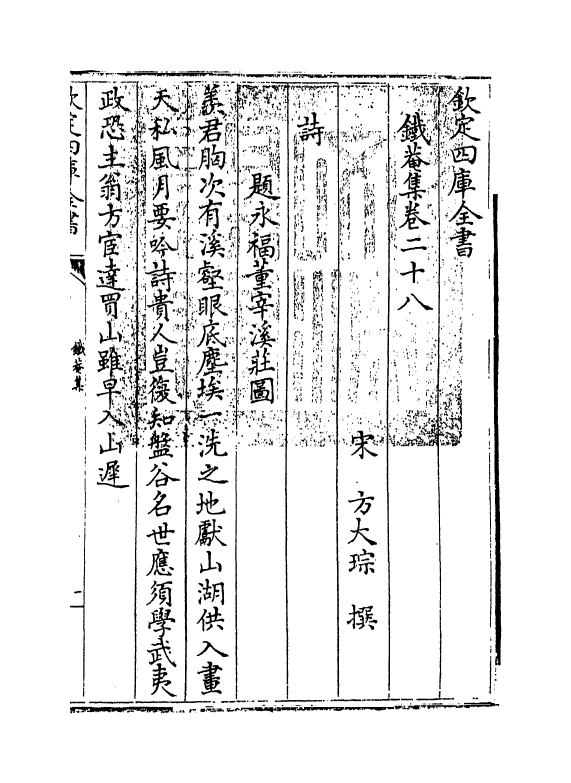 欽定四庫全書
鐵菴集卷二十八
宋 方大琮 撰
詩
題永福董宰溪莊圖
羨君胸次有溪壑眼底塵埃一洗之地獻山湖供入畫
天私風月要吟詩貴人豈復知盤谷名世應須學武夷
政恐主翁方宦達買山雖早入山遲
鐵菴集